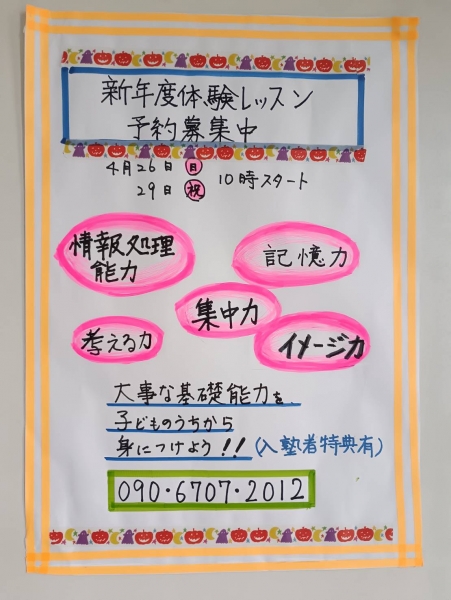 新年度体験レッスン
予約募集中
4月26日(日)
29日(祝) 10時スタート
情報処理
能力
記憶力
集中力
考える力
イメージ力
大事な基礎能力を
子どものうちから
身につけよう!! (入塾者特典有)
090・6707・2012